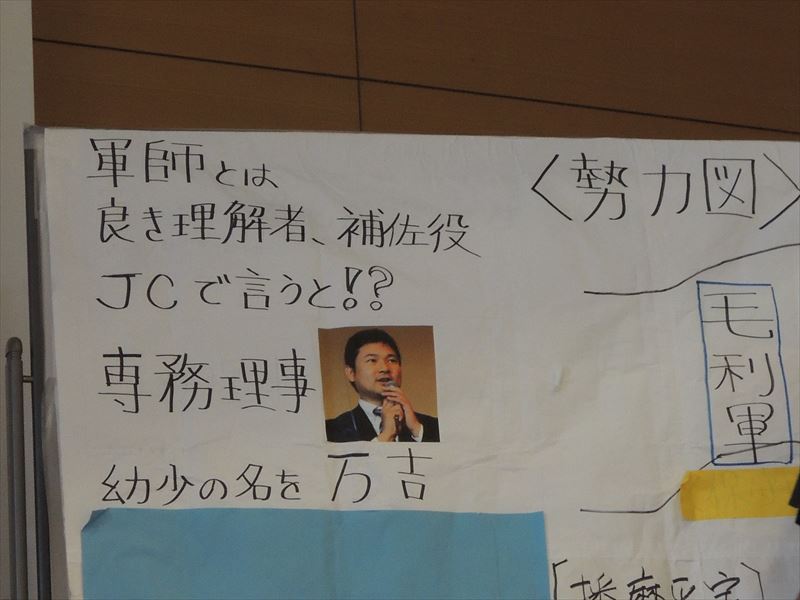 軍師とは
良き理解者、補佐役
JCで言うと!?
専務理事
幼少の名を 万吉
〈勢力図〉
毛利軍